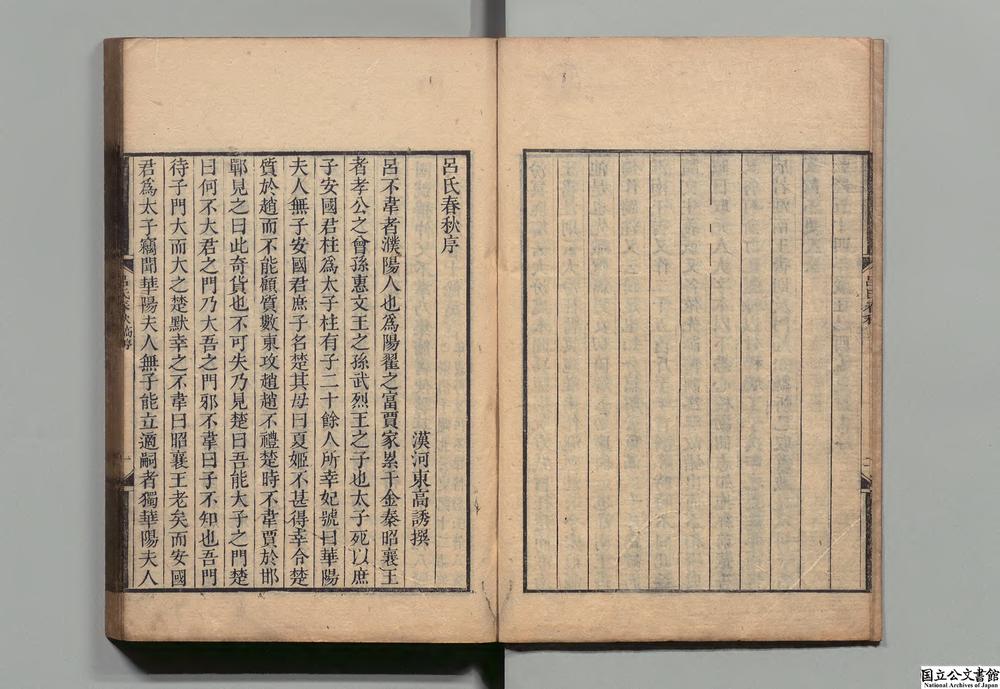 呂氏春秋序
漢河東高誘撰
呂不韋者濮陽人也爲陽翟之富賈家累千金秦昭襄王
者孝公之曾孫惠文王之孫武烈王之子也太子死以庶
子安國君柱爲太子柱有子二十餘人所幸妃號曰華陽
夫人無子安國君庶子名楚其母曰夏姬不甚得幸令楚
質於趙而不能顧質數東攻趙趙不禮楚時不韋賈於邯
鄲見之曰此奇貨也不可失乃見楚曰吾能大子之門楚
曰何不大君之門乃大吾之門邪不韋曰子不知也吾門
待子門大而大之楚默幸之不韋曰昭襄王老矣而安國
君爲太子竊聞華陽夫人無子能立適嗣者獨華陽夫人
呂氏春秋
一
国立公文書館
National Archives of Japan